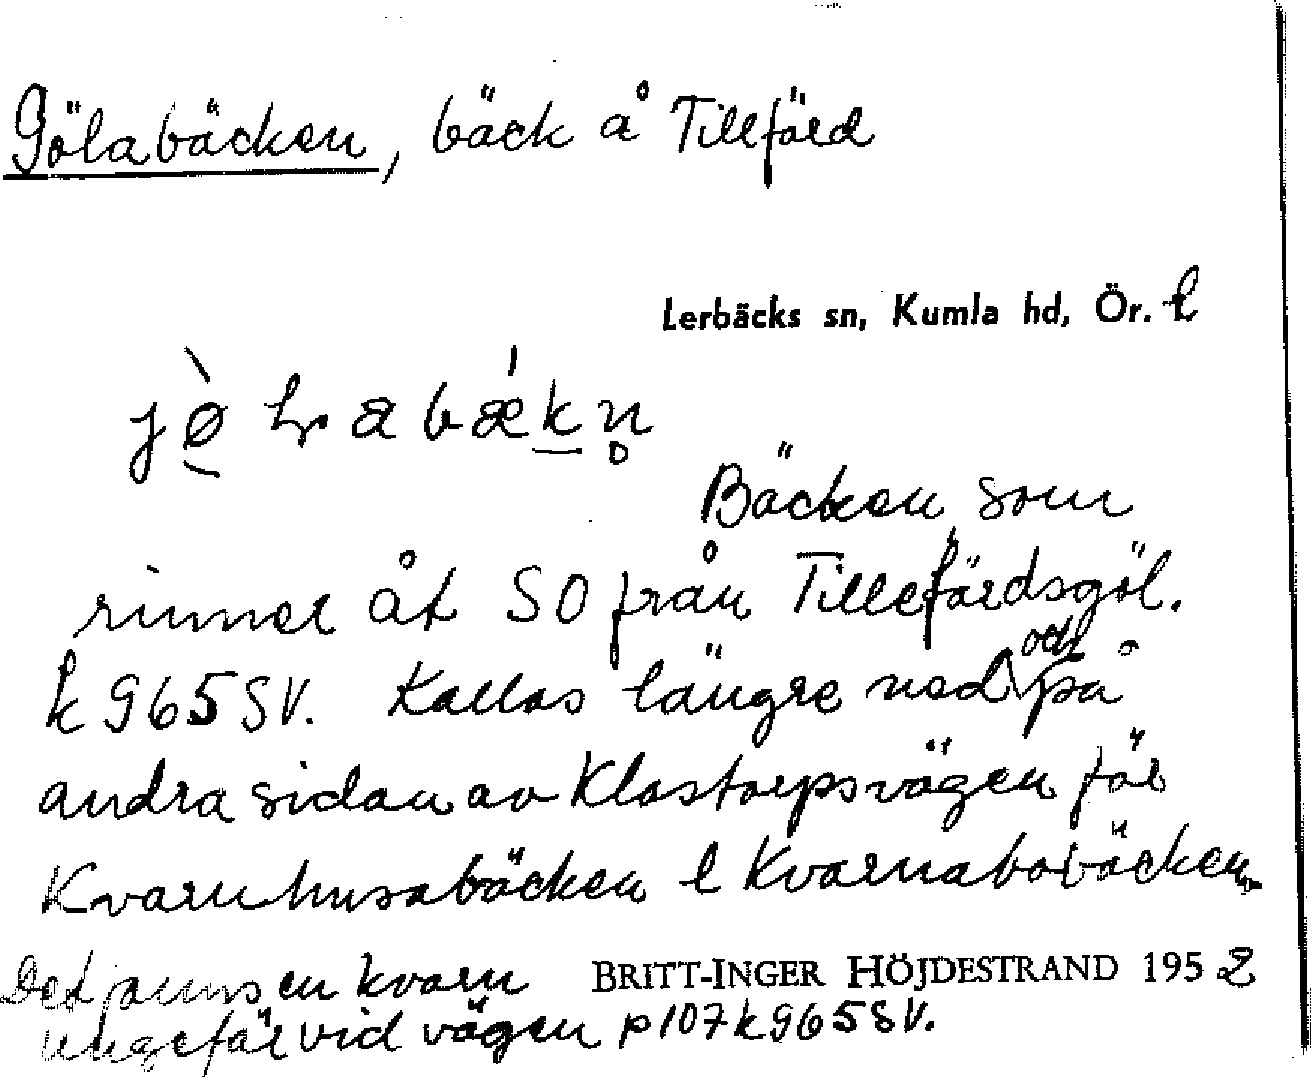 Gölabäcken, bäck å Tillförd
Lerbäcks sn, Kumla hd, Ör. l
Bäcken som
rinner åt SO från Tillefärdsgöl.
k 965 SV. Kallas längre ned och på
andra sidan av Klastorpsvägen för
Kvarnhusabäcken l Kvarnabobäcken
Det fanns en kvarn
BRITT-INGER HÖJDESTRAND 1952
ungefär vid vägen p 107 k 965 SV.